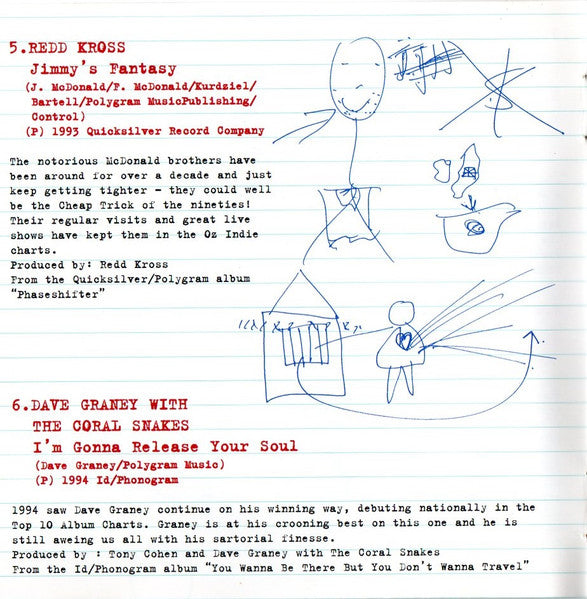 5.REDD KROSS
Jimmy's Fantasy
(J. McDonald/F. McDonald/Kurdziel/
Bartell/Polygram MusicPublishing/
Control)
(P) 1993 Quicksilver Record Company
The notorious McDonald brothers have
been around for over a decade and just
keep getting tighter - they could well
be the Cheap Trick of the nineties!
Their regular visits and great live
shows have kept them in the Oz Indie
charts.
Produced by: Redd Kross
From the Quicksilver/Polygram album
"Phaseshifter"
6.DAVE GRANEY WITH
THE CORAL SNAKES
I'm Gonna Release Your Soul
(Dave Graney/Polygram Music)
(P) 1994 Id/Phonogram
1994 saw Dave Graney continue on his winning way, debuting nationally in the
Top 10 Album Charts. Graney is at his crooning best on this one and he is
still aweing us all with his sartorial finesse.
Produced by : Tony Cohen and Dave Graney with The Coral Snakes
From the Id/Phonogram album "You Wanna Be There But You Don't Wanna Travel"